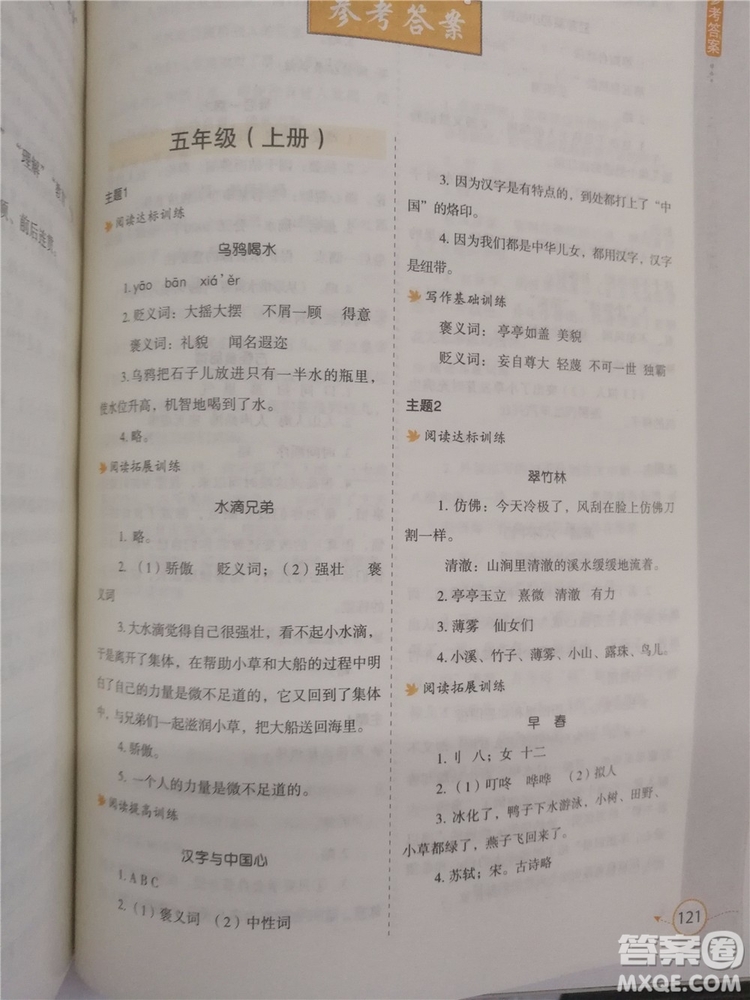 参考答案
参考答案
“理解”
前后连贯。
五年级（上册）
主题1
阅读达标训练
乌鸦喝水
1. yāo bān xiá ěr
2. 贬义词：大摇大摆 不屑一顾 得意
褒义词：礼貌 闻名遐迩
3. 乌鸦把石子儿放进只有一半水的瓶里，
使水位升高，机智地喝到了水。
4. 略。
阅读拓展训练
水滴兄弟
1. 略。
2.（1）骄傲 贬义词；（2）强壮 褒
义词
3. 大水滴觉得自己很强壮，看不起小水滴，
于是离开了集体，在帮助小草和大船的过程中明
白了自己的力量是微不足道的，它又回到了集体
中，与兄弟们一起滋润小草，把大船送回海里。
4. 骄傲。
5. 一个人的力量是微不足道的。
阅读提高训练
汉字与中国心
1. A B C
2.（1）褒义词 （2）中性词
3. 因为汉字是有特点的，到处都打上了“中
国”的烙印。
4. 因为我们都是中华儿女，都用汉字，汉字
是纽带。
写作基础训练
褒义词：亭亭如盖 美貌
贬义词：妄自尊大 轻蔑 不可一世 独霸
主题2
阅读达标训练
翠竹林
1. 仿佛：今天冷极了，风刮在脸上仿佛刀
割一样。
清澈：山涧里清澈的溪水缓缓地流着。
2. 亭亭玉立 熹微 清澈 有力
3. 薄雾 仙女们
4. 小溪、竹子、薄雾、小山、露珠、鸟儿。
阅读拓展训练
早 春
1. 刂 八；女 十二
2.（1）叮咚 哗哗 （2）拟人
3. 冰化了，鸭子下水游泳，小树、田野、
小草都绿了，燕子飞回来了。
4. 苏轼；宋。古诗略
121
答案圈
MXQE.COM